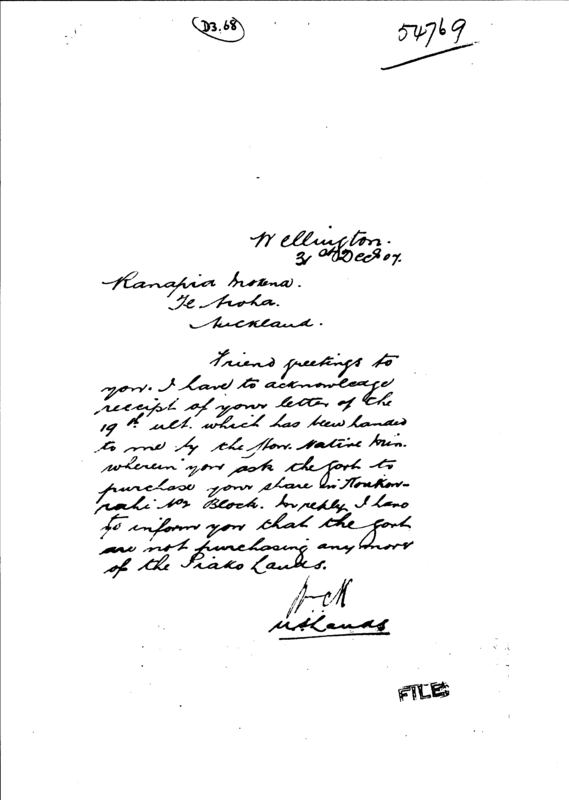 D3.68
54769
Wellington.
31st Dec 07.
Ranapia Mokena.
Te Aroha.
Auckland.
Friend greetings to
you. I have to acknowledge
receipt of your letter of the
19th ult. which has been handed
to me by the Hon. Native Min.
wherein you ask the Govt to
purchase your share in
Block. In reply I have
to inform you that the Govt
are not purchasing any more
of the Piako Lands.
FILE